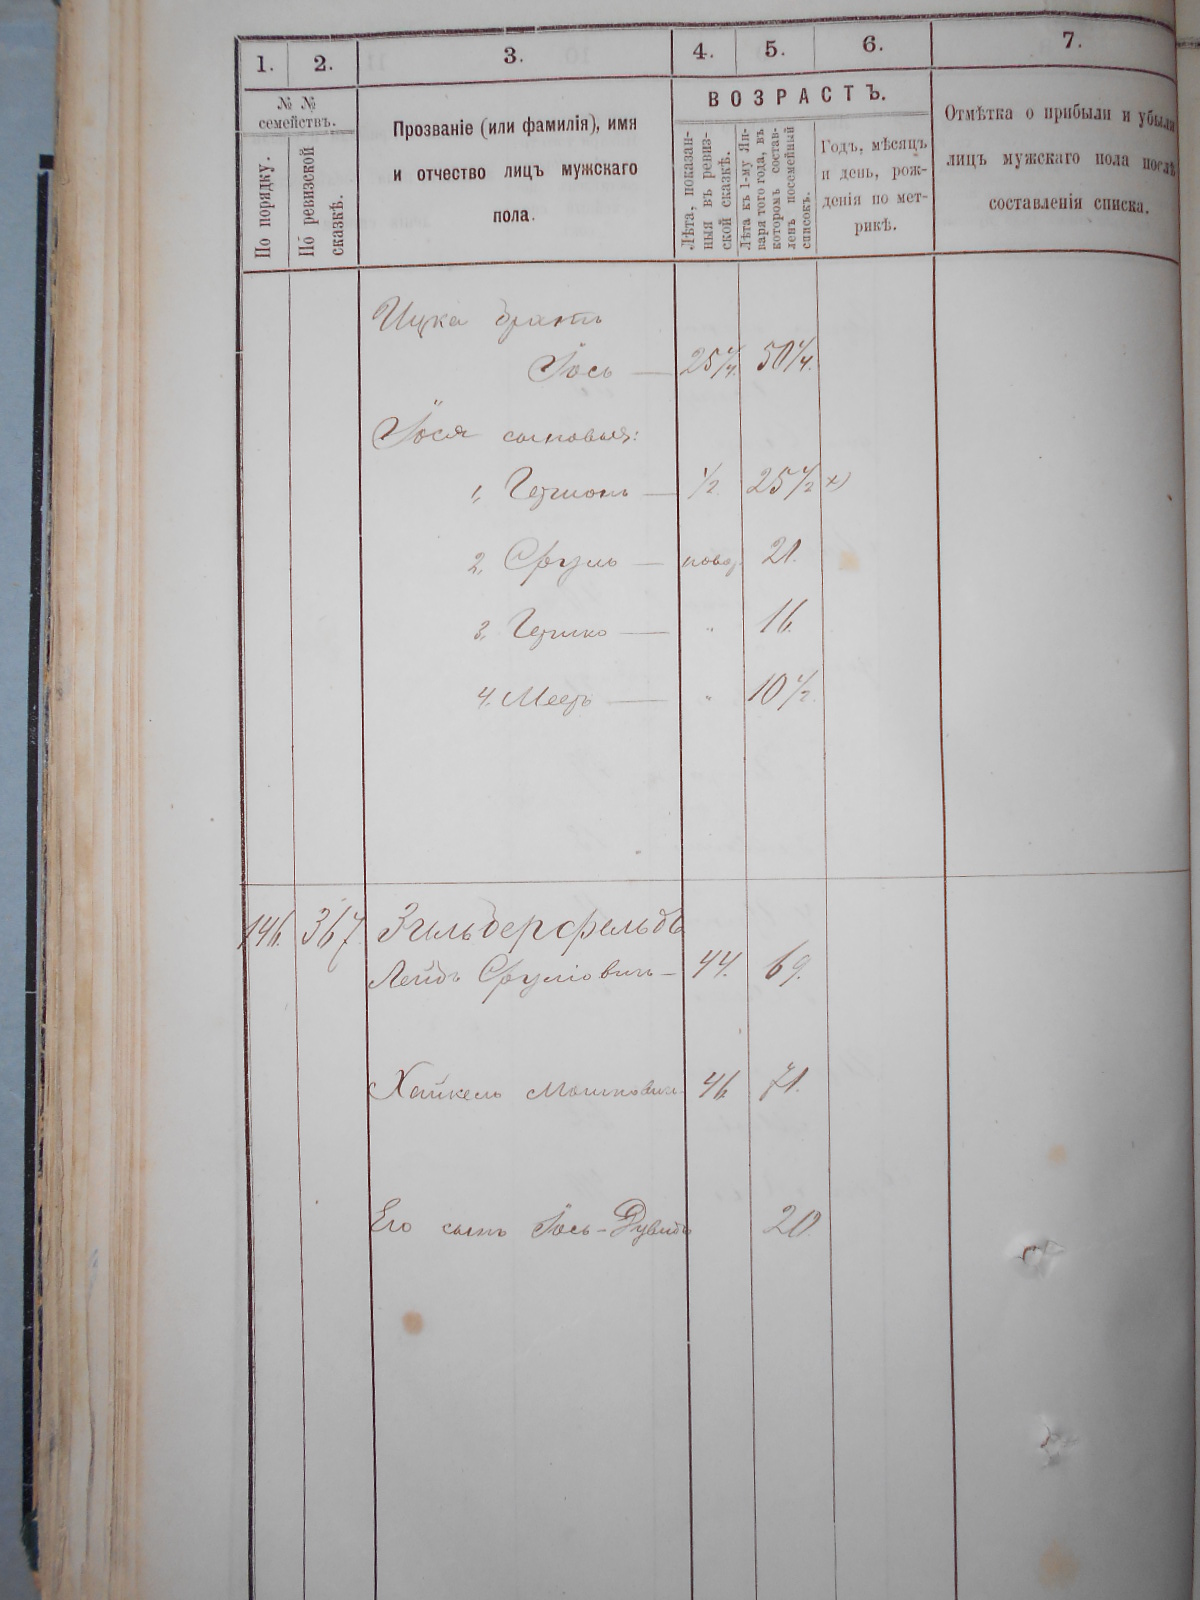 1. 2. 3. 4. 5. 6. 7.
№ №
семействъ.
По порядку.
По ревизской
сказкѣ.
Прозваніе (или фамилія), имя
и отчество лицъ мужскаго
пола.
ВОЗРАСТЪ.
Лѣта, показан-
ныя въ ревиз-
ской сказкѣ.
Лѣта къ 1-му Ян-
варя того года, въ
которомъ состав-
ленъ посемейный
списокъ.
Годъ, мѣсяцъ
и день, рож-
денія по мет-
рикѣ.
Отмѣтка о прибыли и убыли
лицъ мужскаго пола послѣ
составленія списка.
Ицка братъ
Іось — 25 1/4. 50 1/4.
Іося сыновья:
1, Гершонъ — 1/2. 25 1/2 х)
2, Сруль — новор. 21.
3, Гершко — " 16.
4. Мееръ — " 10 1/2.
146. 367. Зильберфельдъ
Лейбъ Срулiовичъ — 44. 69.
Хайкель Мошковичъ 46. 71.
Его сынъ Іось-Дувидъ 20.